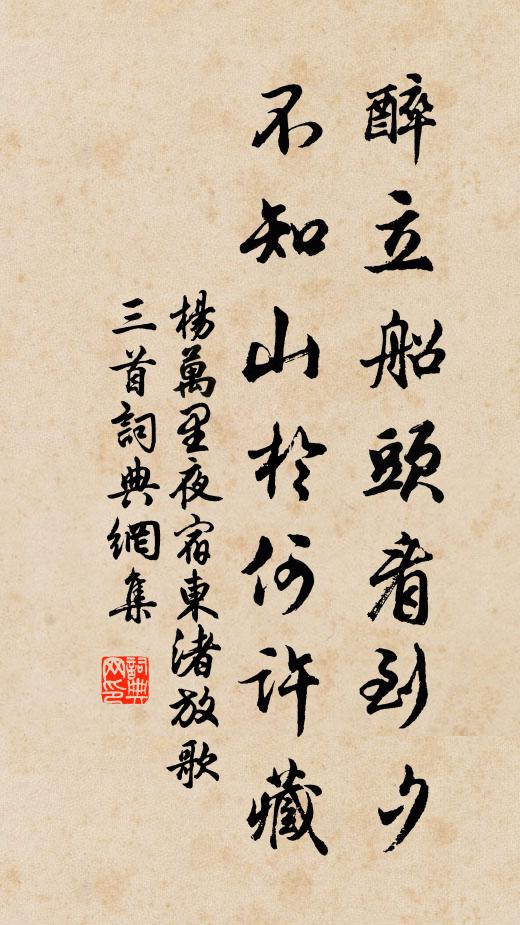 醉立船頭看到夕
不知山於何許藏
楊萬里夜宿東渚放歌
三首詞典網集
詞典网印